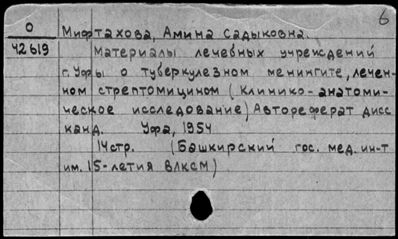 6
О
42619
Мифтахова, Амина Садыковна.
Материалы лечебных учреждений
г. Уфы о туберкулезном менингите, лечен-
ном стрептомицином (Клинико-анатоми-
ческое исследование) Автореферат дисс
канд. Уфа, 1954
14стр. (Башкирский гос. мед. ин-т
им. 15-летия ВЛКСМ)